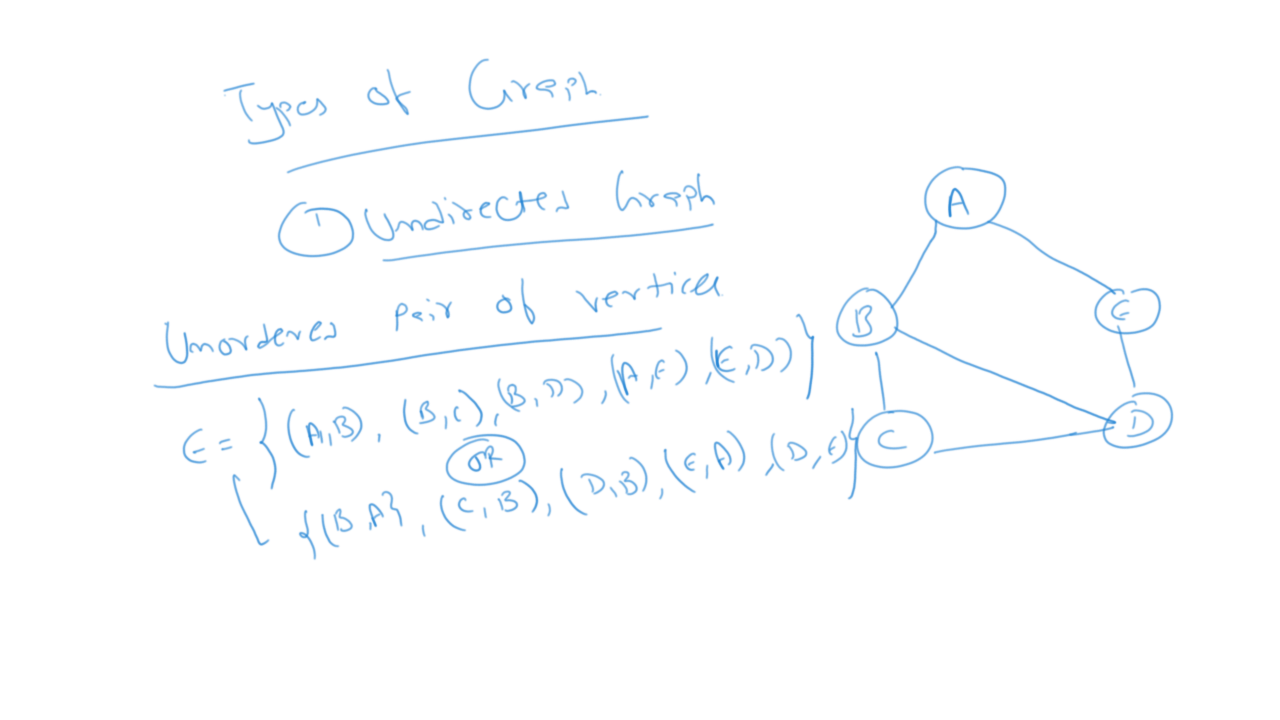 Types of Graph
① Undirected Graph
Unordered pair of vertices
E = {(A,B), (B,C), (B,D), (A,E), (E,D)}
OR
{(B,A}, (C,B), (D,B), (E,A), (D,E)}
A
B
E
C
D